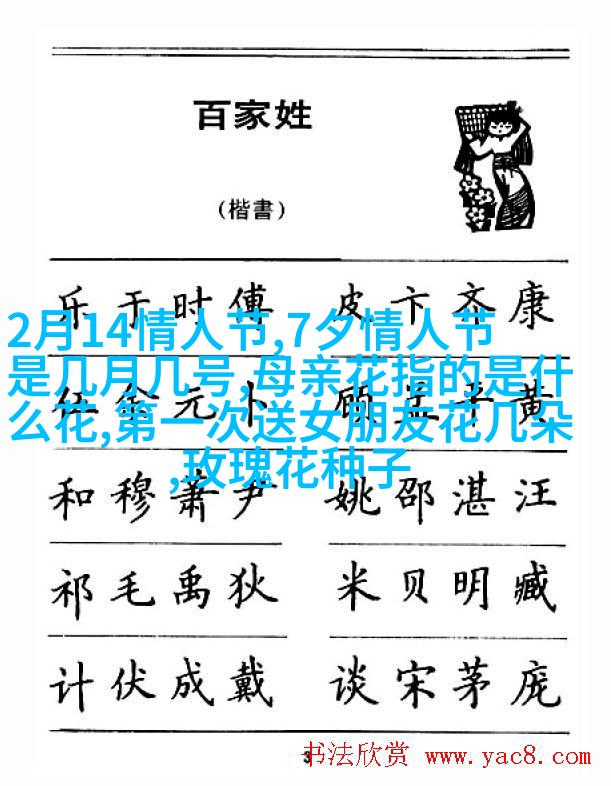 百家姓
(楷書)
乐于时傅 皮卞齐康
2月14情人节,7夕情人节
是几月几号,母亲花指的是什
么花,第一次送女朋友花几朵
,玫瑰花种子
元卜 顾 平黄
和穆萧尹 姚邵湛汪
祁毛禹狄 米贝明臧
计伏成戴 谈宋茅庞
3
书法欣赏 www.yac8.com